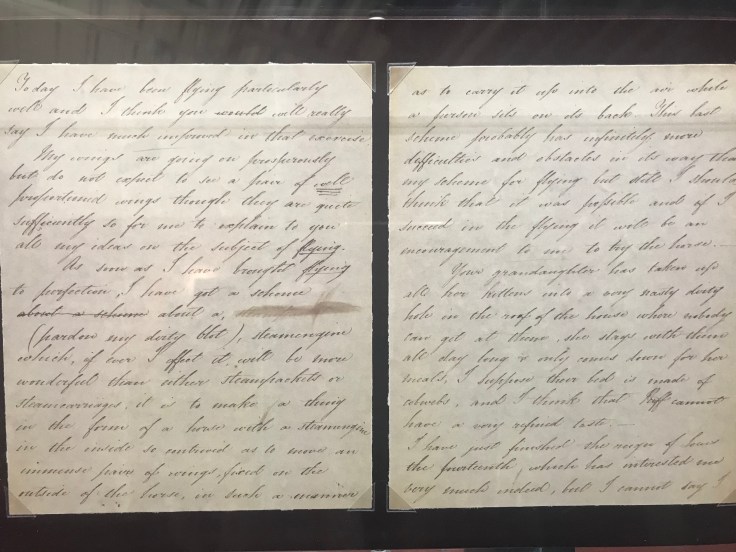 Today I have been flying particularly
well and I think you would will really
say I have much improved in that exercise
My wings are going on prosperously
but do not expect to see a pair of well
proportioned wings though they are quite
sufficiently so for me to explain to you
all my ideas on the subject of flying.
As soon as I have brought flying
to perfection, I have got a scheme
about a scheme about a
(pardon my dirty blot), steamengine
which, if ever I effect it will be more
wonderful than either steampackets or
steamcarriages, it is to make a thing
in the form of a horse with a steamengine
in the inside so contrived as to move an
immense pair of wings, fixed on the
outside of the horse, in such a manner
as to carry it up into the air while
a person sits on its back. This last
scheme probably has infinitely more
difficulties and obstacles in its way than
my scheme for flying but still I should
think that it was possible and if I
succeed in the flying it will be an
encouragement to me to try the horse.—
Your grandaughter has taken up
all her kittens into a very nasty dirty
hole in the roof of the house where nobody
can get at them, she stays with them
all day long & only comes down for her
meals, I suppose their bed is made of
cobwebs, and I think that Puff cannot
have a very refined taste.—
I have just finished the reign of
the fourteenth, which has interested me
very much indeed, but I cannot say I